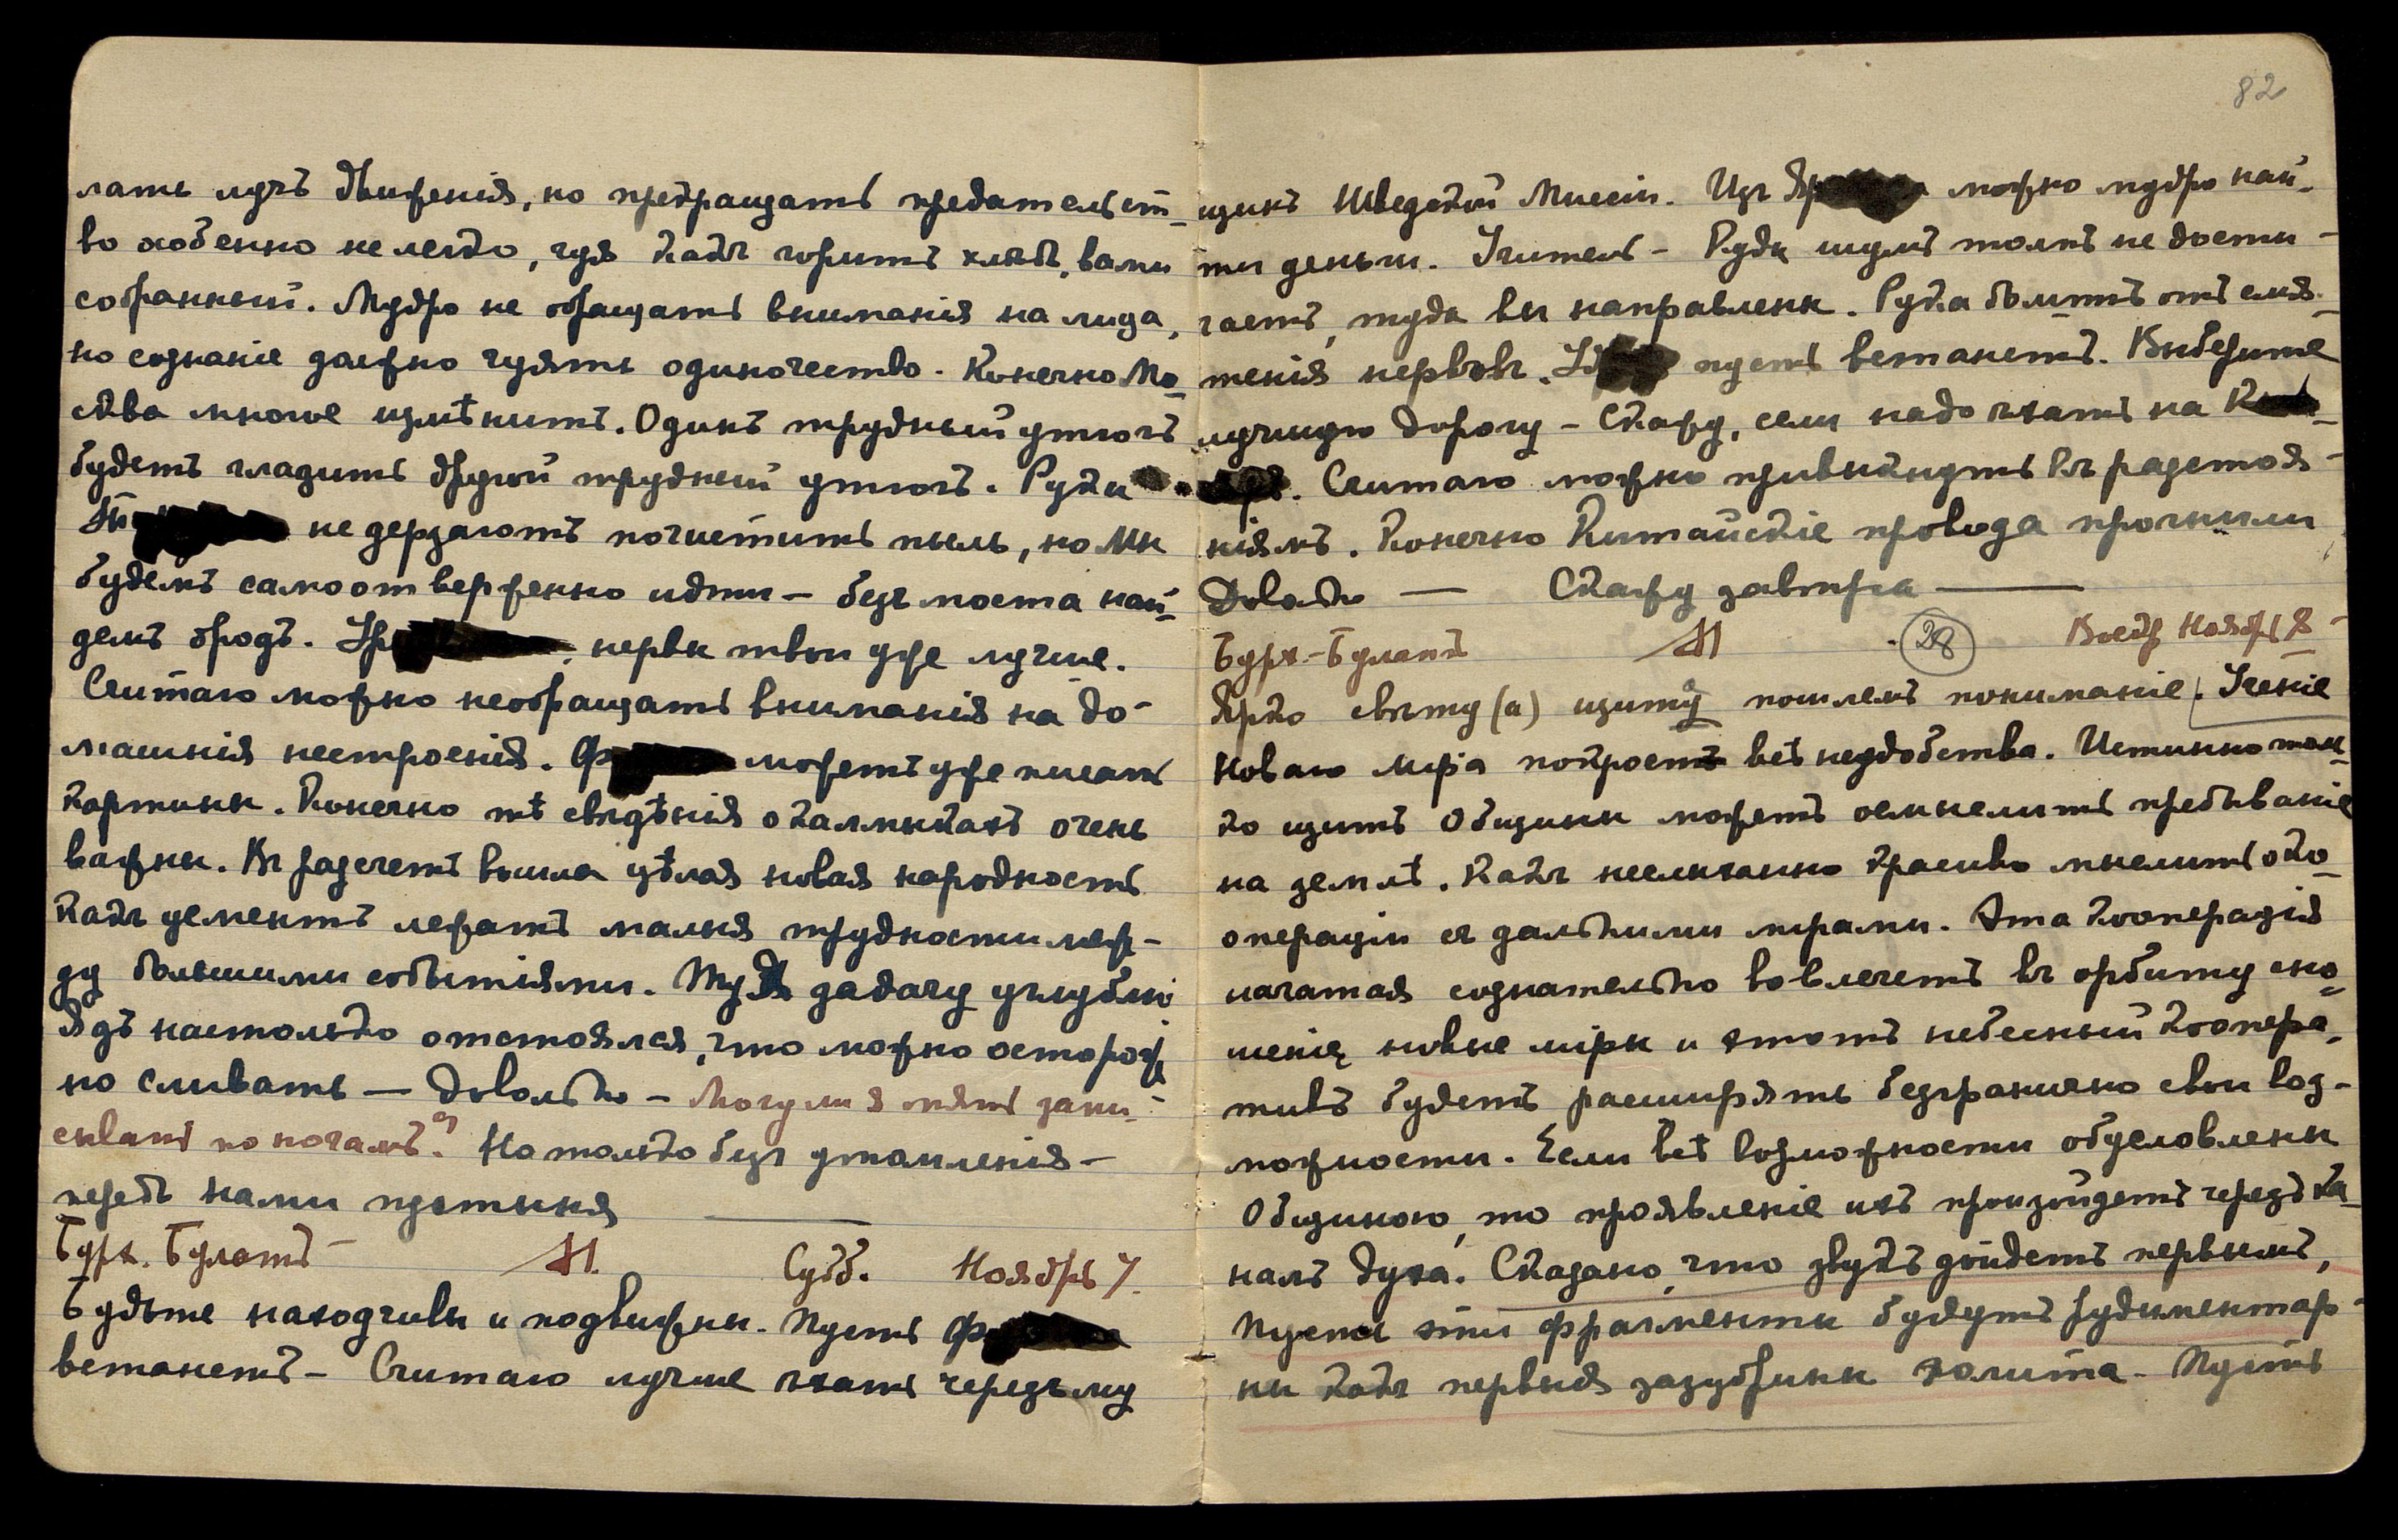 лать лучъ движенія, но прекращать предательст-
во особенно нелегко, чуя какъ горитъ хлѣбъ, вами
собранный. Мудро не обращать вниманія на лица,
но сознаніе должно чуять одиночество. Конечно Мо-
сква многое измѣнитъ. Одинъ трудный утюгъ
будетъ гладить другой трудный утюгъ. Руки
не дерзаютъ почистить пыль, но Мы
будемъ самоотверженно идти – безъ моста най-
демъ бродъ. Ур нервы твои уже лучше.
Считаю можно необращать вниманія на до-
машнія нестроенія. Ф можетъ уже писать
картины. Конечно тѣ свѣдѣнія о калмыкахъ очень
важны. Въ разсчетъ вошла цѣлая новая народность
Какъ цементъ лежатъ малыя трудности меж-
ду большими событіями. Туя задачу углублю
Ядъ настолько отстоялся, что можно осторож
но сливать — Довольно – Могу ли я опять запи-
сывать по ночамъ? Но только безъ утомленія –
передъ нами пустыня ———
Бурх. Булатъ – М. Субб. Ноябрь 7.
Будьте находчивы и подвижны. Пусть Ф
встанетъ – Считаю лучше ѣхать черезъ му
82
щинъ Шведской Миссіи. Изъ Яр можно мудро най-
ти деньги. Учитель – Куда шумъ толпъ не дости-
гаетъ, туда вы направлены. Рука болитъ отъ смя-
тенія нервовъ. У пусть встанетъ. Выберите
лучшую дорогу – Скажу, если надо ѣхать на К
. Считаю можно привыкнуть къ разстоя-
ніямъ. Конечно Китайскіе провода прогнили
Довольно — Скажу завтра ———
Бурх.-Булатъ М 28 Вскр Ноябрь 8 –
Ярко свѣту (а) щиту пошлемъ пониманіе. Ученіе
Новаго міра покроетъ всѣ неудобства. Истинно толь-
ко щитъ Общины можетъ осмыслить пребываніе
на землѣ. Какъ неслыханно красиво мыслить о ко-
операціи съ дальними мірами. Эта кооперація
начатая сознательно вовлечетъ въ орбиту сно-
шенія новые міры и этотъ небесный коопера-
тивъ будетъ расширять безгранично свои воз-
можности. Если всѣ возможности обусловлены
Общиною, то проявленіе ихъ произойдетъ черезъ ка-
налъ духа. Сказано, что звукъ дойдетъ первымъ,
Пусть эти фрагменты будутъ рудиментар-
ны какъ первыя зазубрины эолита – Пусть